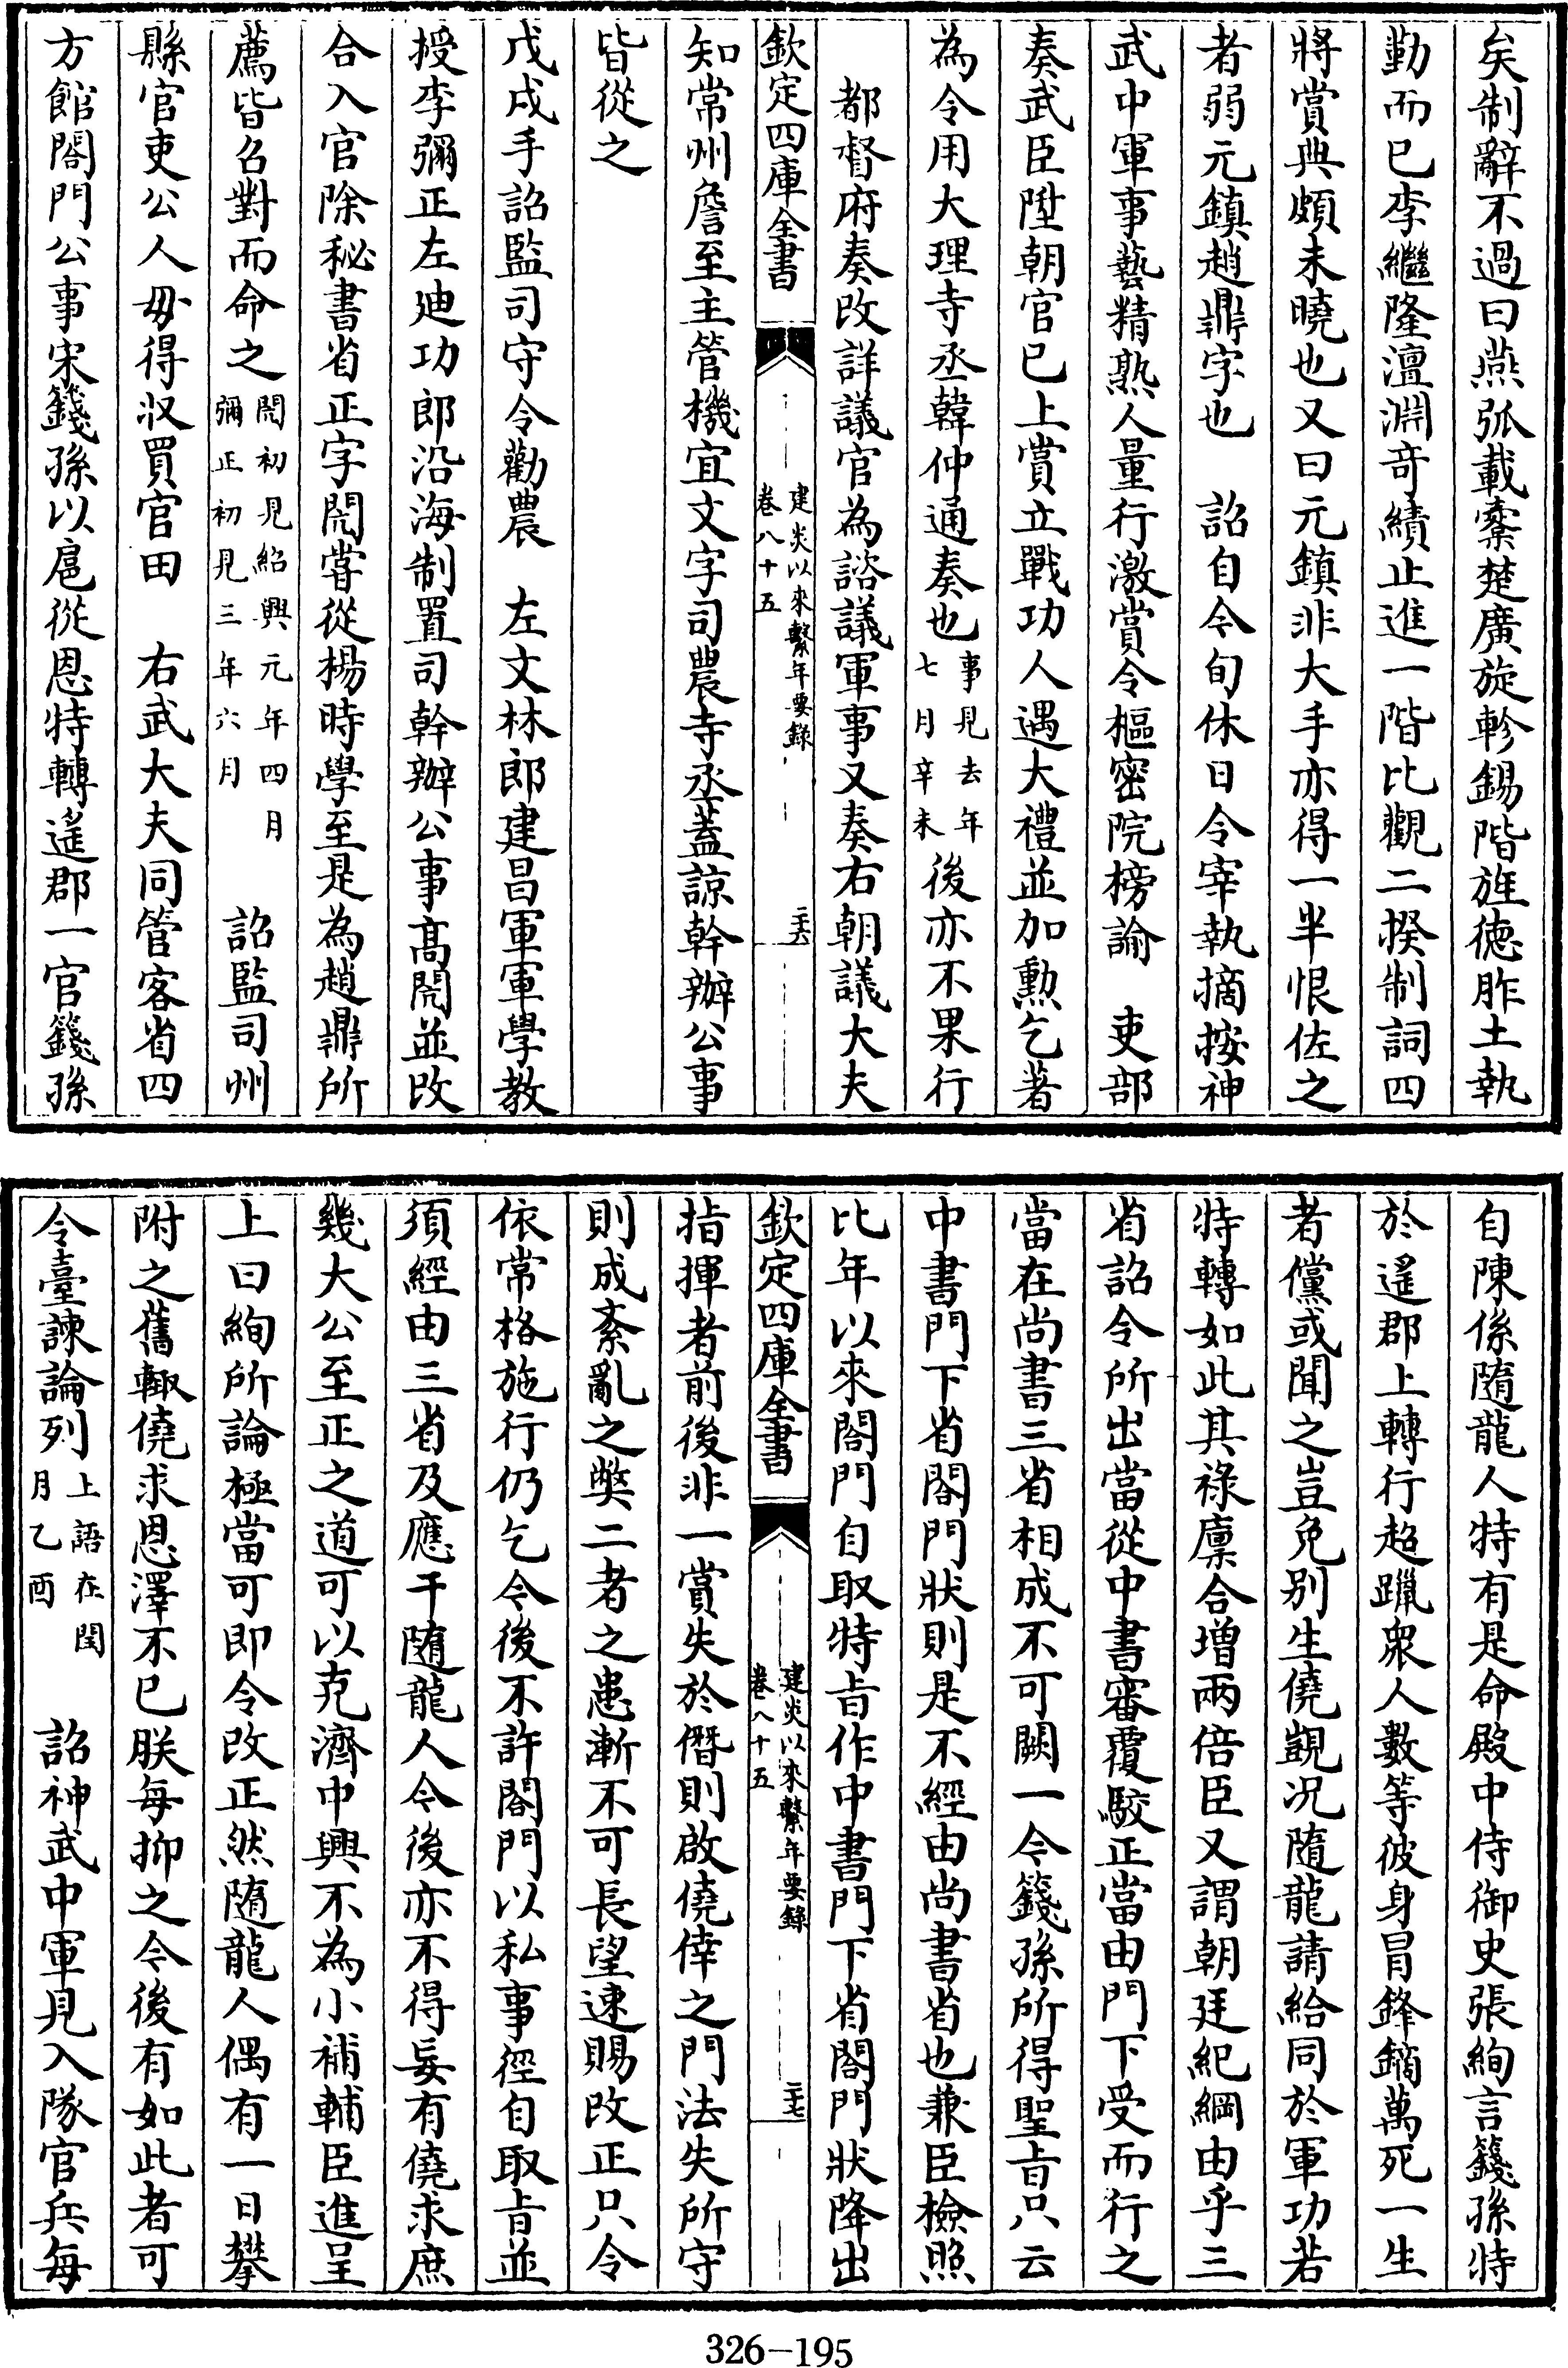 矣制辭不過曰燕弧載櫜楚廣旋軫錫階旌德胙土執
勤而已李繼隆澶淵竒績止進一階比觀二揆制詞四
將賞典頗未曉也又曰元鎮非大手亦得一半恨佐之
者弱元鎮趙鼎字也　詔自今旬休日令宰執摘按神
武中軍事藝精熟人量行激賞令樞密院榜諭　吏部
奏武臣陞朝官已上賞立戰功人遇大禮並加勲乞著
為令用大理寺丞韓仲通奏也事見去年
七月辛未後亦不果行
都督府奏改詳議官為諮議軍事又奏右朝議大夫
欽定四庫全書
建炎以來繫年要錄
卷八十五
二十六
知常州詹至主管機宜文字司農寺丞蓋諒幹辦公事
皆從之
戊戌手詔監司守令勸農　左文林郎建昌軍軍學教
授李彌正左迪功郎沿海制置司幹辦公事髙閌並改
合入官除秘書省正字閌嘗從楊時學至是為趙鼎所
薦皆召對而命之閌初見紹興元年四月
彌正初見三年六月　詔監司州
縣官吏公人毋得收買官田　右武大夫同管客省四
方館閤門公事宋籛孫以扈從恩特轉遙郡一官籛孫
自陳係隨龍人特有是命殿中侍御史張絢言籛孫特
於遙郡上轉行超躐衆人數等彼身冒鋒鏑萬死一生
者儻或聞之豈免别生僥覬况隨龍請給同於軍功若
特轉如此其祿廩合增兩倍臣又謂朝廷紀綱由乎三
省詔令所出當從中書審覆駮正當由門下受而行之
當在尚書三省相成不可闕一今籛孫所得聖旨只云
中書門下省閤門狀則是不經由尚書省也兼臣檢照
比年以來閤門自取特旨作中書門下省閤門狀降出
欽定四庫全書
建炎以來繫年要錄
卷八十五
二十七
指揮者前後非一賞失於僭則啟僥倖之門法失所守
則成紊亂之弊二者之患漸不可長望速賜改正只令
依常格施行仍乞今後不許閤門以私事徑自取旨並
須經由三省及應干隨龍人今後亦不得妄有僥求庶
幾大公至正之道可以克濟中興不為小補輔臣進呈
上曰絢所論極當可即令改正然隨龍人偶有一日攀
附之舊輙僥求恩澤不已朕每抑之今後有如此者可
令臺諫論列上語在閏
月乙酉　詔神武中軍見入隊官兵每
326-195